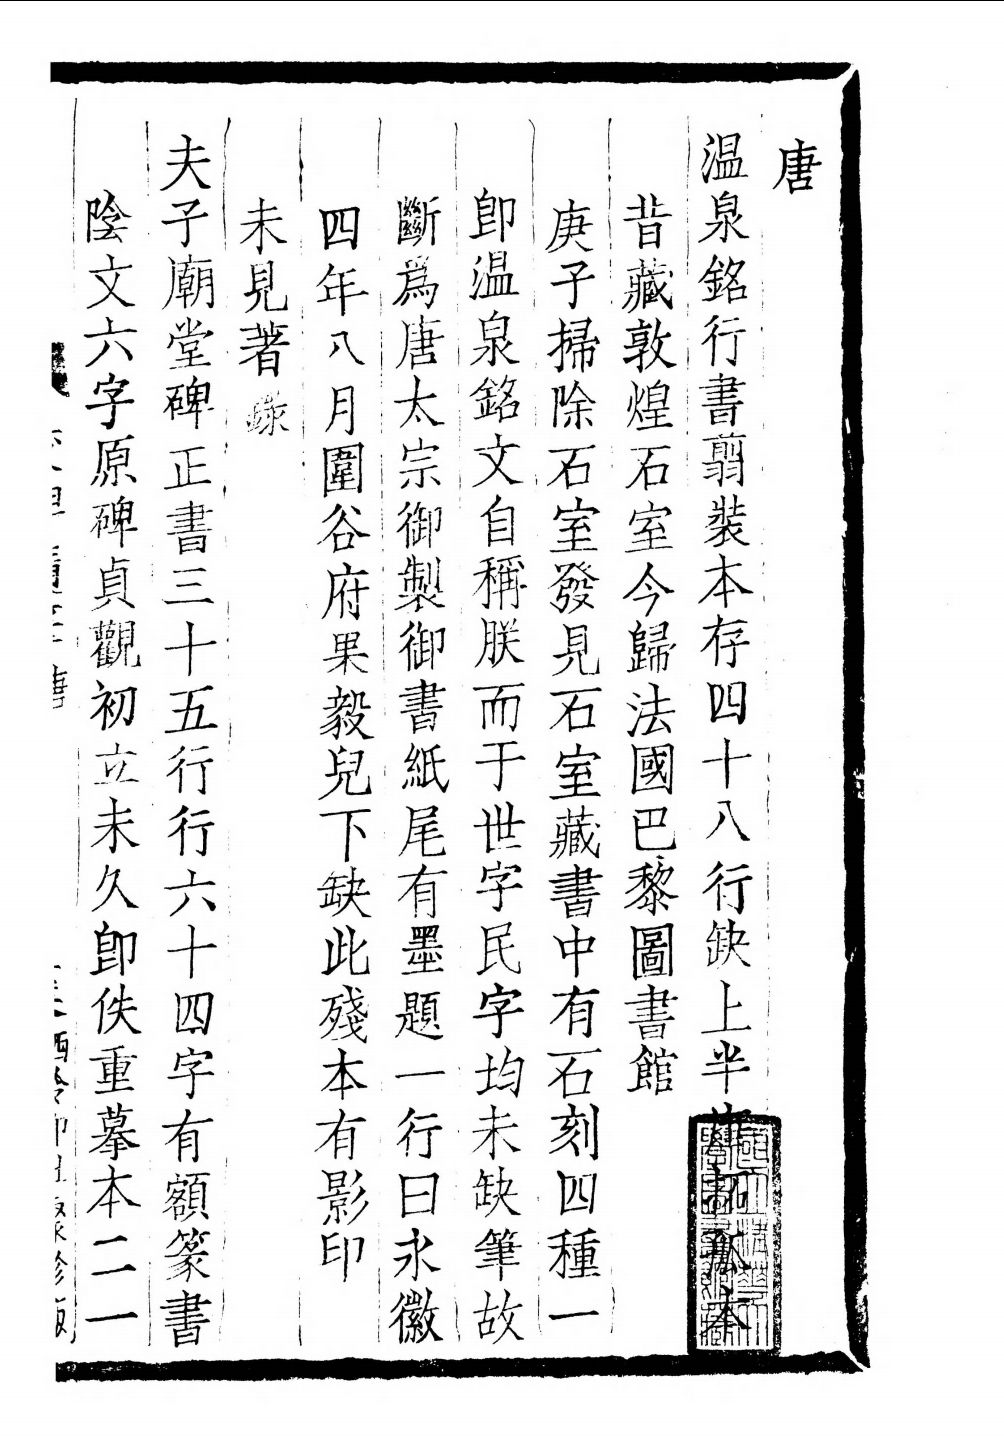 唐
温泉銘行書翦裝本存四十八行缺上半唐拓孤本
昔藏敦煌石室今歸法國巴黎圖書館
庚子掃除石室發見石室藏書中有石刻四種一
卽温泉銘文自稱朕而于世字民字均未缺筆故
斷爲唐太宗御製御書紙尾有墨題一行曰永徽
四年八月圍谷府果毅兒下缺此殘本有影印
未見著錄
夫子廟堂碑正書三十五行行六十四字有額篆書
陰文六字原碑貞觀初立未久卽佚重摹本二一